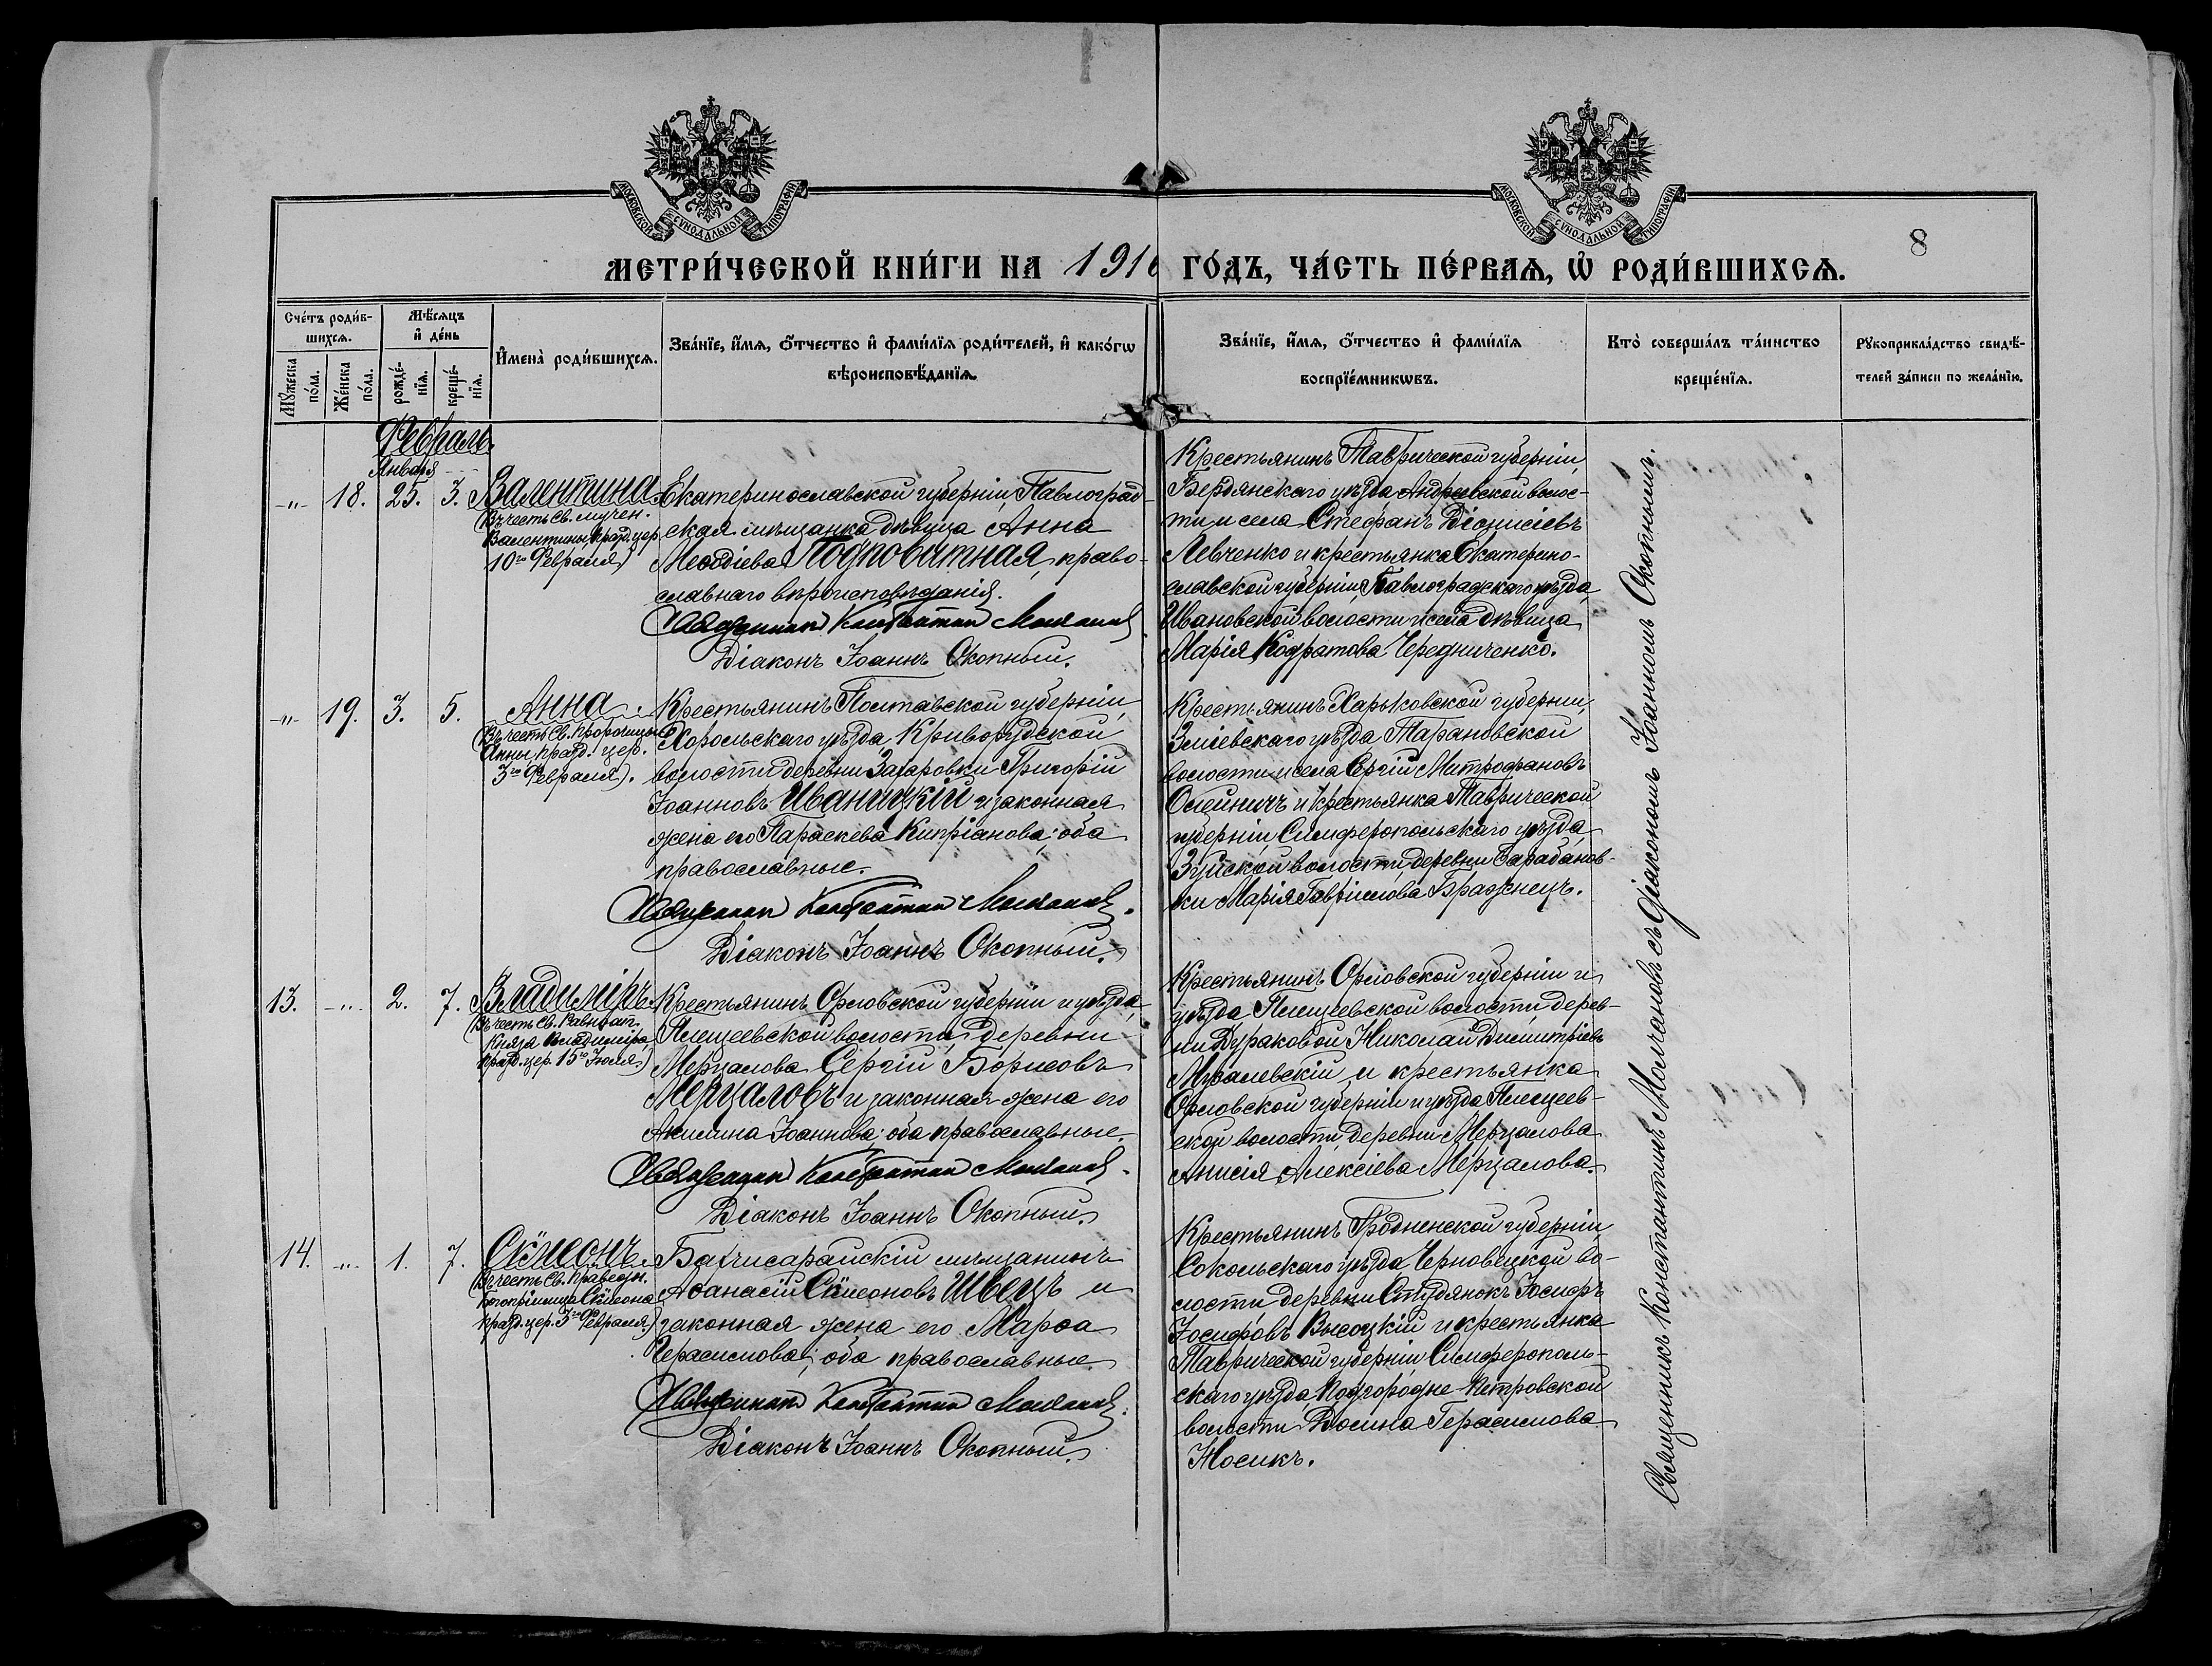 МОСКОВСКОЙ СѴНОДАЛЬНОЙ ТИПОГРАФІИ
МОСКОВСКОЙ СѴНОДАЛЬНОЙ ТИПОГРАФІИ
8
МЕТРИ́ЧЕСКОЙ КНИ́ГИ НА 1916 ГО́ДЪ, ЧА́СТЬ ПЕ́РВАЯ, Ѡ РОДИ́ВШИХСЯ.
Сче́тъ роди́в-
шихся.
Мѣ́сяцъ
и҆ де́нь
Мꙋ́жеска
по́ла.
Же́нска
по́ла.
рожде́-
нїя.
креще́-
нїя.
И҆мена̀ роди́вшихся.
Зва́нїе, и҆́мя, ѻ҆́тчество и҆ фами́лїя роди́телей, и҆ како́гѡ
вѣроисповѣ́данїя.
Зва́нїе, и҆́мя, ѻ҆́тчество и҆ фами́лїя
воспрїе́мникѡвъ.
Кто̀ соверша́лъ та́инство
креще́нїя.
Рꙋкоприкла́дство свидѣ́-
телей за́писи по жела́нїю.
Февраль.
Января
-"- 18. 25. 3. Валентина
Въ честь Св. мучен.
Валентины, празд. цер.
10го Февраля)
Екатеринославской губерніи, Павлоград-
ская мѣщанка дѣвица Анна
Меѳодіева Подповѣтная, право-
славнаго вѣроисповѣданія.
Священникъ Константинъ Молчановъ
Діаконъ Іоаннъ Окопный.
Крестьянинъ Таврической губерніи,
Бердянскаго уѣзда, Андреевской волос-
ти и села Стефанъ Діонисіевъ
Левченко и крестьянка Екатерино-
славской губерніи, Павлоградскаго уѣзда,
Ивановской волости и села дѣвица
Марія Кодратова Чередниченко.
-"- 19. 3. 5. Анна
(Въ честь Св. пророчицы
Анны, празд. цер.
3го Февраля).
Крестьянинъ Полтавской губерніи,
Хорольскаго уѣзда, Криворудской
волости деревни Захаровки Григорій
Іоанновъ Иваницкій и законная
жена его Параскева Кипріанова; оба
православные.
Священникъ Константинъ Молчановъ.
Діаконъ Іоаннъ Окопный.
Крестьянинъ Харьковской губерніи,
Зміевскаго уѣзда Тарановской
волости и села Сергій Митрофановъ
Олейничъ и крестьянка Таврической
губерніи, Симферопольскаго уѣзда,
Зуйской волости, деревни Барабанов-
ки Марія Гавріилова Браженецъ.
13. -"- 2. 7. Владиміръ
(Въ честь Св. Равноап.
Князя Владиміра,
празд. цер. 15го Іюля.)
Крестьянинъ Орловской губерніи и уѣзда,
Плещеевской волости, деревни
Мерцалова Сергій Борисовъ
Мерцаловъ и законная жена его
Акилина Іоаннова; оба православные.
Священникъ Константинъ Молчановъ.
Діаконъ Іоаннъ Окопный.
Крестьянинъ Орловской губерніи и
уѣзда Плещеевской волости, дерев-
ни Дураковой Николай Димитріевъ
и крестьянка
Орловской губерніи и уѣзда Плещеев-
ской волости, деревни Мерцалова
Анисія Алексіева Мерцалова.
14. -"- 1. 7. Сѵмеонъ
(Въ честь Св. праведн.
Богопріимца Сѵмеона
празд. цер. 3го Февраля)
Бахчисарайскій мѣщанинъ
Аѳанасій Сѵмеоновъ Швецъ и
законная жена его Марѳа
Герасимова; оба православные.
Священникъ Константинъ Молчановъ.
Діаконъ Іоаннъ Окопный.
Крестьянинъ Гродненской губерніи,
Сокольскаго уѣзда, во-
лости деревни Студянокъ Іосифъ
Іосифовъ Высоцкій и крестьянка
Таврической губерніи Симферополь-
скаго уѣзда, Подгородне-Петровской
волости Домна Герасимова
Носикъ.
Священникъ Константинъ Молчановъ съ діакономъ Іоанномъ Окопнымъ.